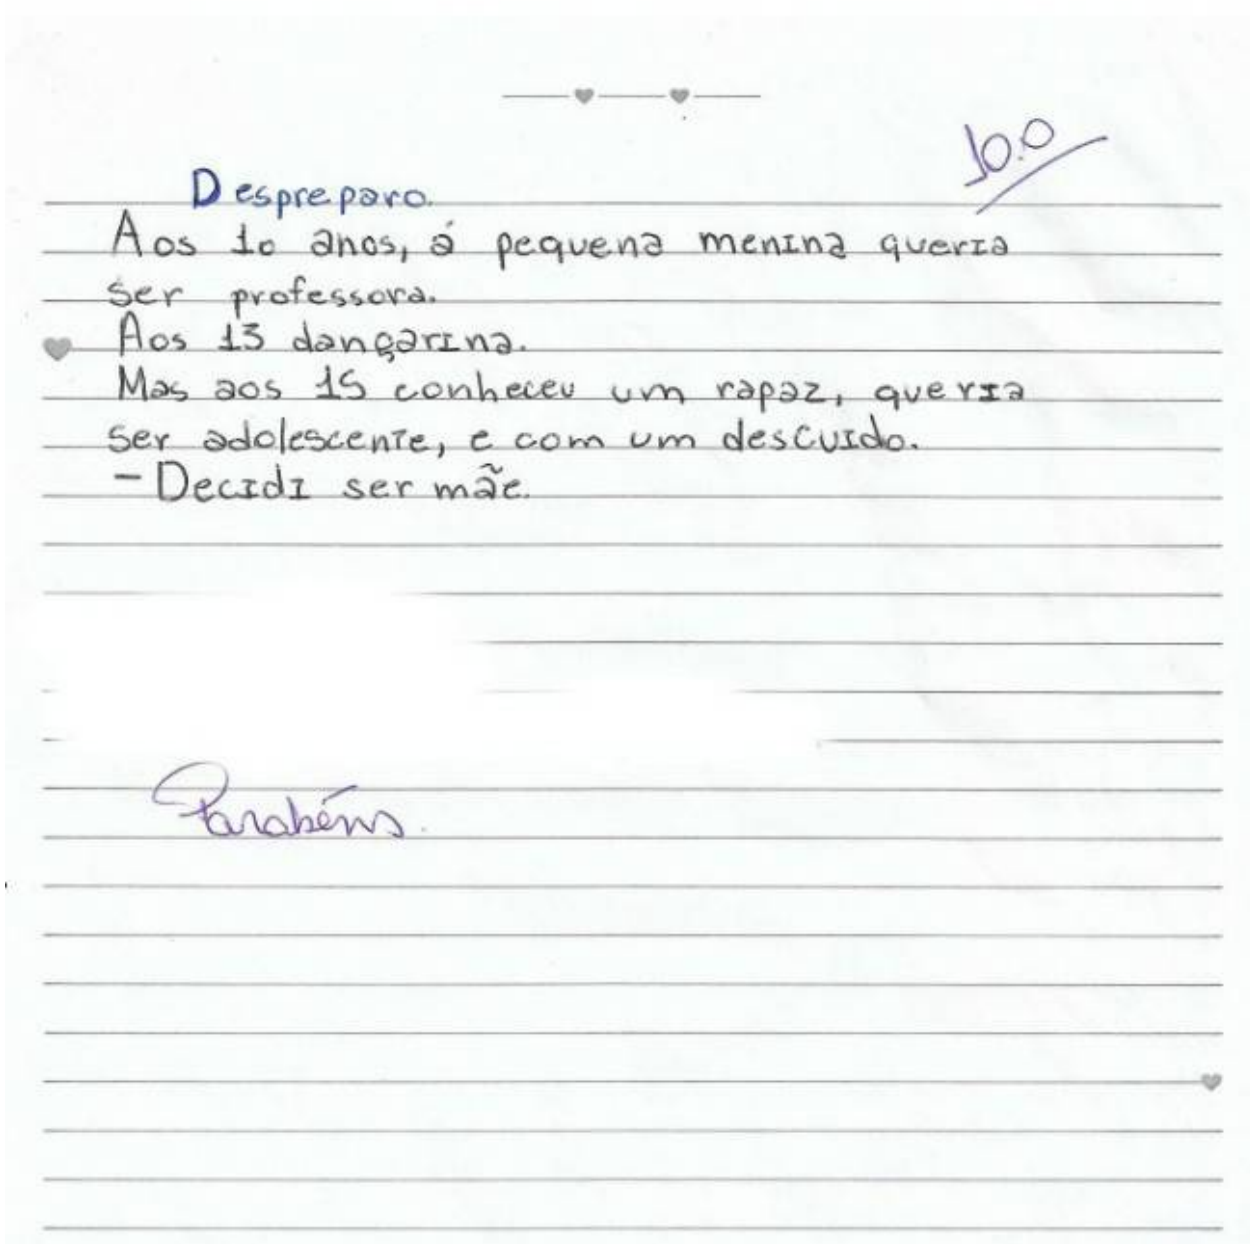 10.0
Despreparo.
Aos 10 anos, á pequena menina queria
ser professora.
Aos 13 dançarina.
Mas aos 15 conheceu um rapaz, queria
ser adolescente, e com um descuido.
- Decidi ser mãe.
Parabéns.